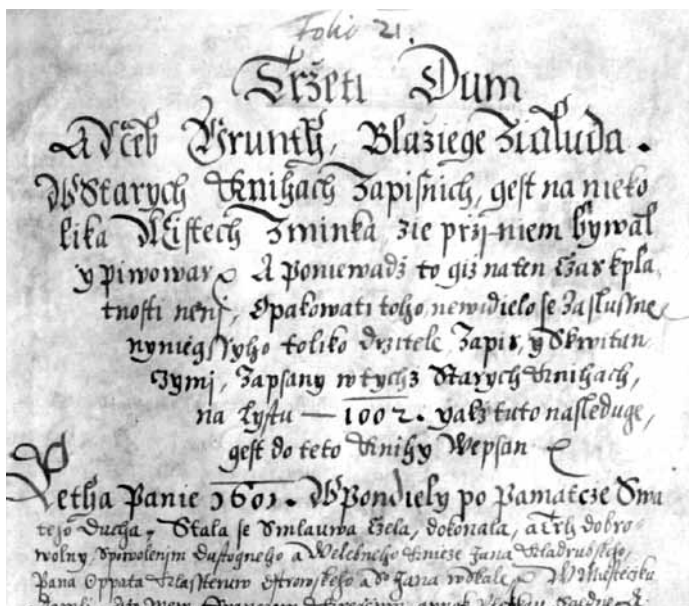 Folio 21.
Tržeti Dum
A včeb Grunth, Blažiege Zialuda.
W Starych Knihach Zapisnich, gest na nieko
lika Mistech Zminka zie prži niem bywal
y piwowar A poniewadž to giž na ten čas k pla
tnosti neni, Opakowati toho newidielo se za slussne
nynieg ssyho toliko držitele Zapis, y S kwitan
zymi, Zapsany w tychž Starych Knihach,
na Lystu — 1002. yakž tuto nasleduge,
gest do teto Knihy Wepsan
Letha Panie 1601. W Pondiely po Pamatcze Swa
teho Ducha, Stala se Smlauwa czela, dokonala, a trh dobro
wolny, S powolenim Dustogneho a Welebneho knieze Jana Kladrubskeho,
Pana Oppata Klassteruw Ostrowskeho a S. Jana w Skale, W Miesteczku